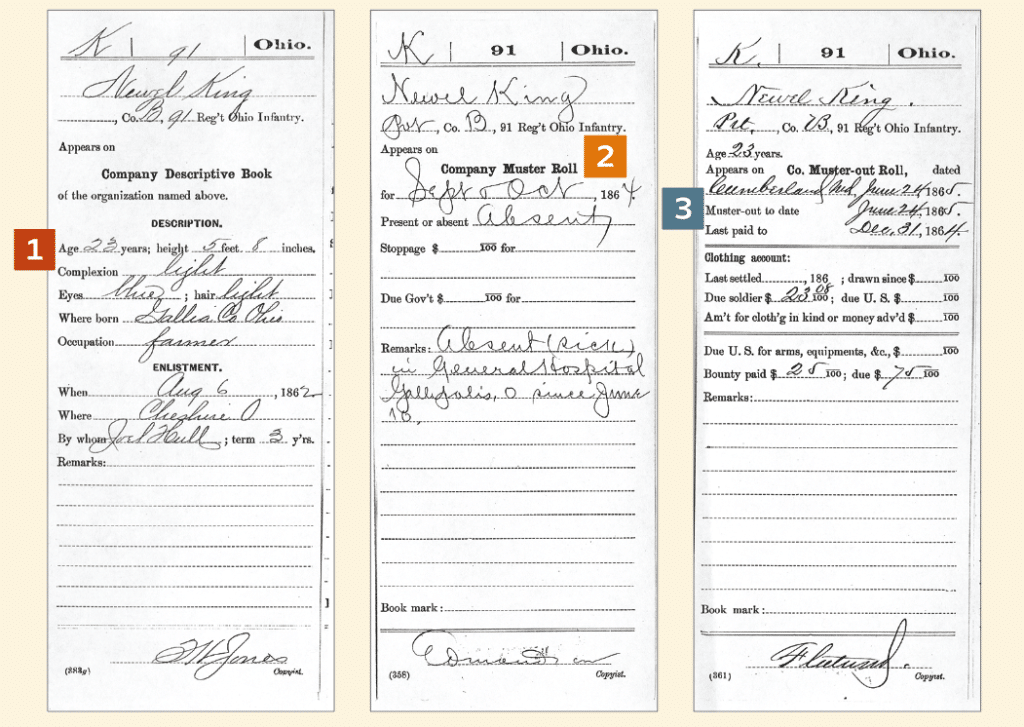 K | 91 | Ohio.
Newel King
, Co. B, 91 Reg't Ohio Infantry.
Appears on
Company Descriptive Book
of the organization named above.
DESCRIPTION.
1
Age 23 years; height 5 feet 8 inches.
Complexion light
Eyes blue; hair light
Where born Gallia Co Ohio
Occupation farmer
ENLISTMENT.
When Aug 6, 1862
Where Cheshire O
By whom Joel Hull; term 3 y'rs.
Remarks:
Jones
(383g) Copyist.
K | 91 | Ohio.
Newel King
Pvt, Co. B, 91 Reg't Ohio Infantry.
Appears on
2
Company Muster Roll
for Sept & Oct, 1864
Present or absent Absent
Stoppage $ 100 for
Due Gov't $ 100 for
Remarks: Absent (sick)
in General Hospital
Gallipolis, O since June
18,
Book mark:
(358) Copyist.
K. | 91 | Ohio.
Newel King.
Pvt., Co. B, 91 Reg't Ohio Infantry.
Age 23 years.
Appears on Co. Muster-out Roll, dated
Cumberland Md June 24, 1865.
3
Muster-out to date June 24, 1865.
Last paid to Dec. 31, 1864
Clothing account:
Last settled, 186 ; drawn since $ 100
Due soldier $ 23 08 100; due U. S. $ 100
Am't for cloth'g in kind or money adv'd $ 100
Due U. S. for arms, equipments, &c., $ 100
Bounty paid $ 25 100; due $ 75 100
Remarks:
Book mark:
(361) Copyist.